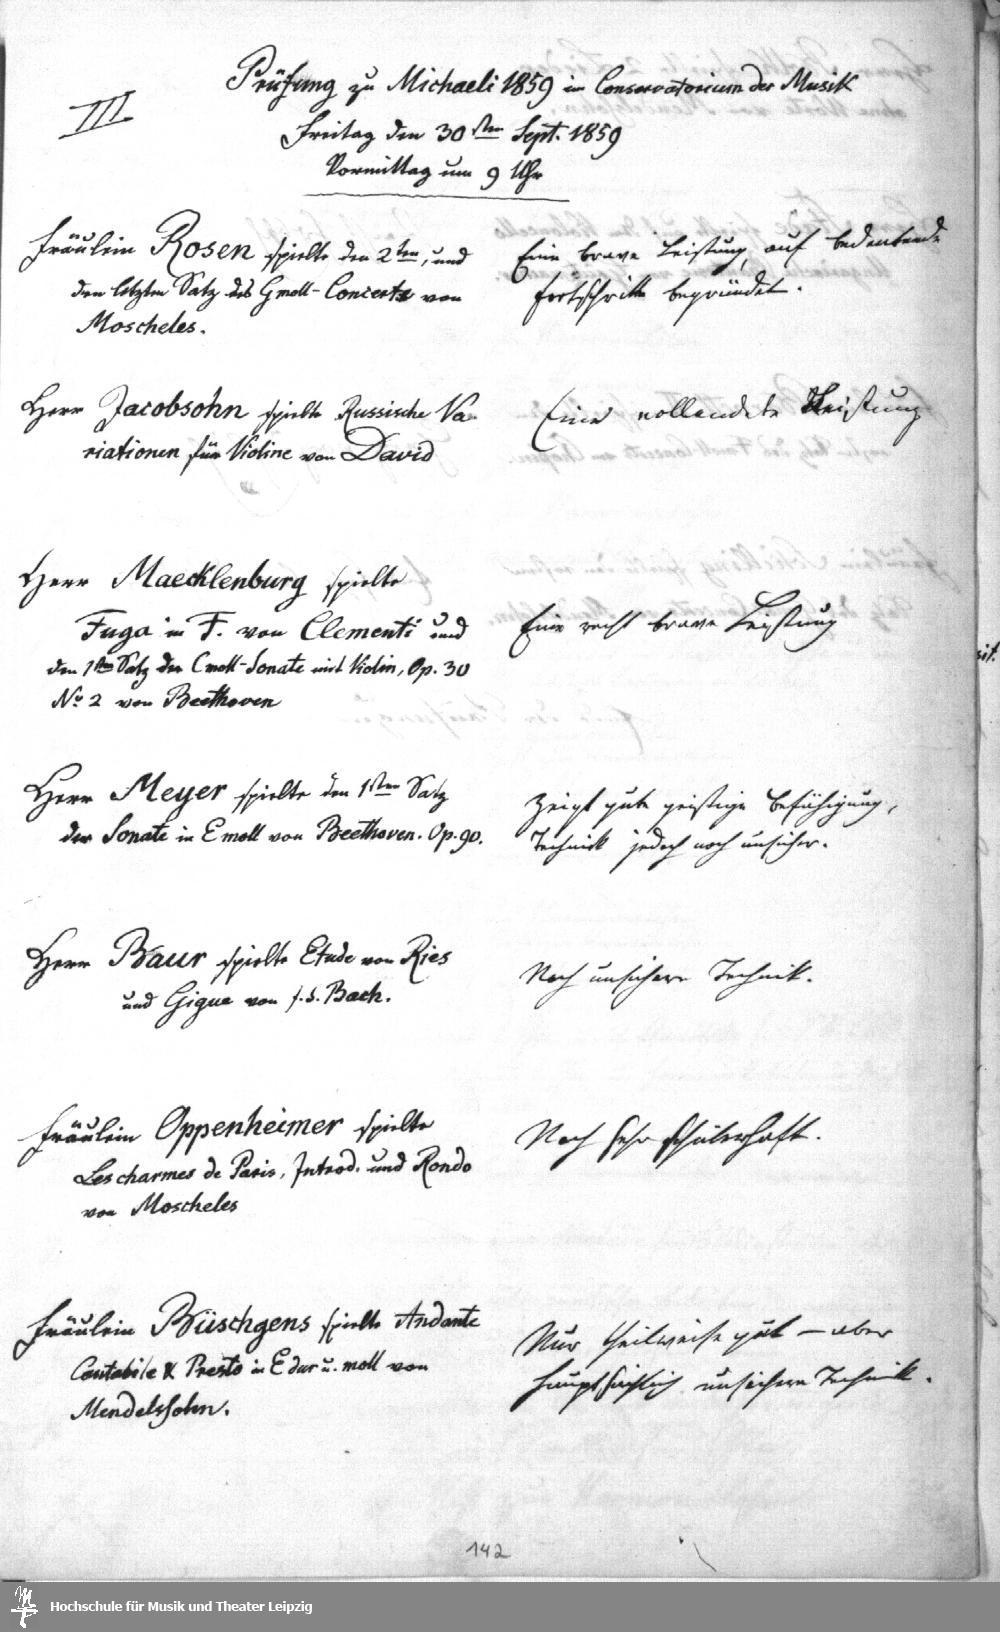 III
Prüfung zu Michaeli 1859 im Conservatorium der Musik
Freitag den 30sten Sept. 1859
Vormittag um 9 Uhr
Fräulein Rosen spielte den 2ten, und
den letzten Satz des Gmoll-Concerts von
Moscheles.
Eine brave Leistung, auf bedeutende
Fortschritte begründet.
Herr Jacobsohn spielte Russische Va-
riationen für Violine von David
Eine vollendete Leistung
Herr Maecklenburg spielte
Fuga in F. von Clementi und
den 1sten Satz der Cmoll-Sonate mit Violin, Op. 30
No. 2 von Beethoven
Eine recht brave Leistung
Herr Meyer spielte den 1sten Satz
der Sonate in Emoll von Beethoven. Op. 90.
Zeigt gute geistige Befähigung,
Technick jedoch noch unsicher.
Herr Baur spielte Etude von Ries
und Gigue von J. S. Bach.
Noch unsichere Technik.
Fräulein Oppenheimer spielte
Les charmes de Paris, Introd. und Rondo
von Moscheles
Noch sehr schülerhaft.
Fräulein Büschgens spielte Andante
Cantabile & Presto in Edur u. moll von
Mendelssohn.
Nur theilweise gut – aber
hauptsächlich unsichere Technik.
142
Hochschule für Musik und Theater Leipzig